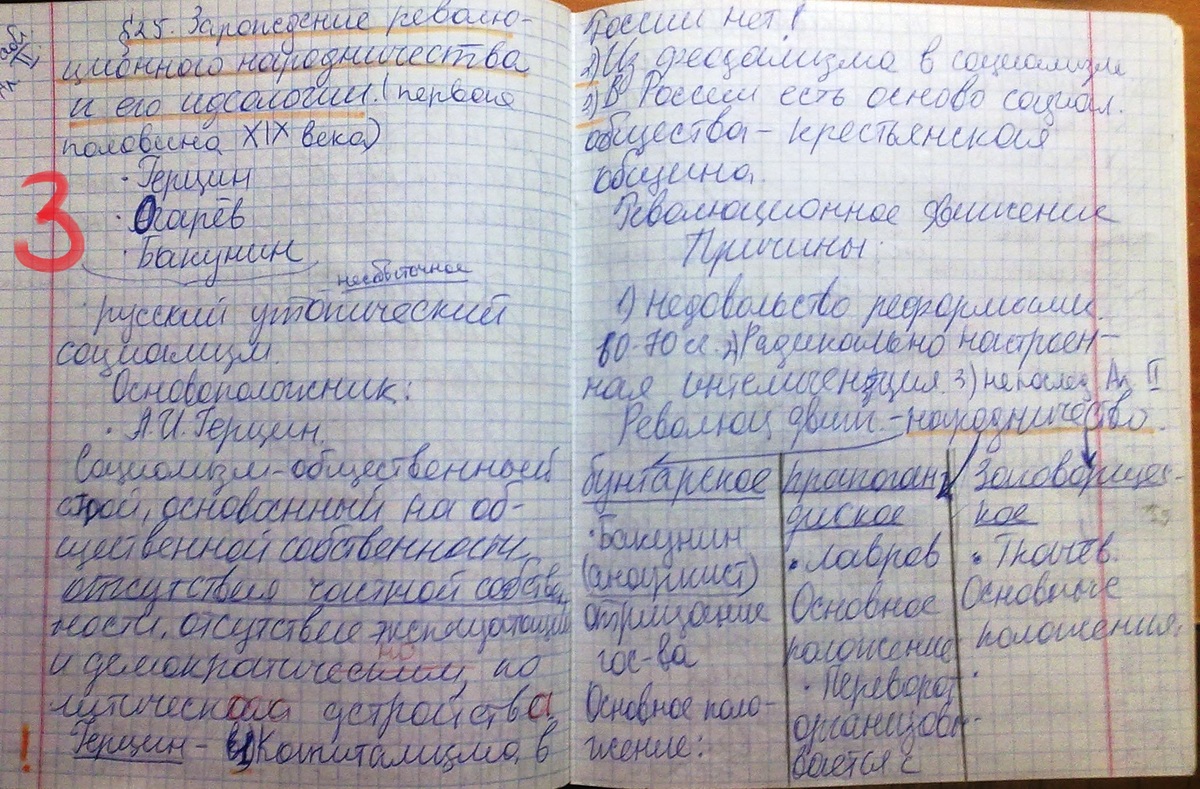 §25. Зарождение револю-
ционного народничества
и его идеологии. (первая
половина XIX века)
· Герцин
· Огарёв
· Бакунин
3
несбыточное
русский утопический
социализм.
Основоположник:
· А.И. Герцин.
Социализм - общественный
строй, основанный на об-
щественной собственности,
отсутствия частной собстве
ности, отсутствие эксплуатации
и демократическим, по
но
литическога устройства
! Герцин - 1) Капитализма в
России нет!
2) Из феодализма в социализм
3) В России есть основа социал.
общества - крестьянская
община.
Революционное движение
Причины:
1) недовольство реформами.
60-70 гг. 2) Радикально настроен-
ная интелигенция. 3) непослед. Ал. II
Революц движ. - народничество.
бунтарское
· Бакунин
(анархист)
отрицание
гос-ва
Основное поло-
жение:
пропоган
диское
· Лавров
Основное
положение
· Переворот
организовы-
вается с
Заговорщичес-
кое
· Ткачёв.
Основные
положения: